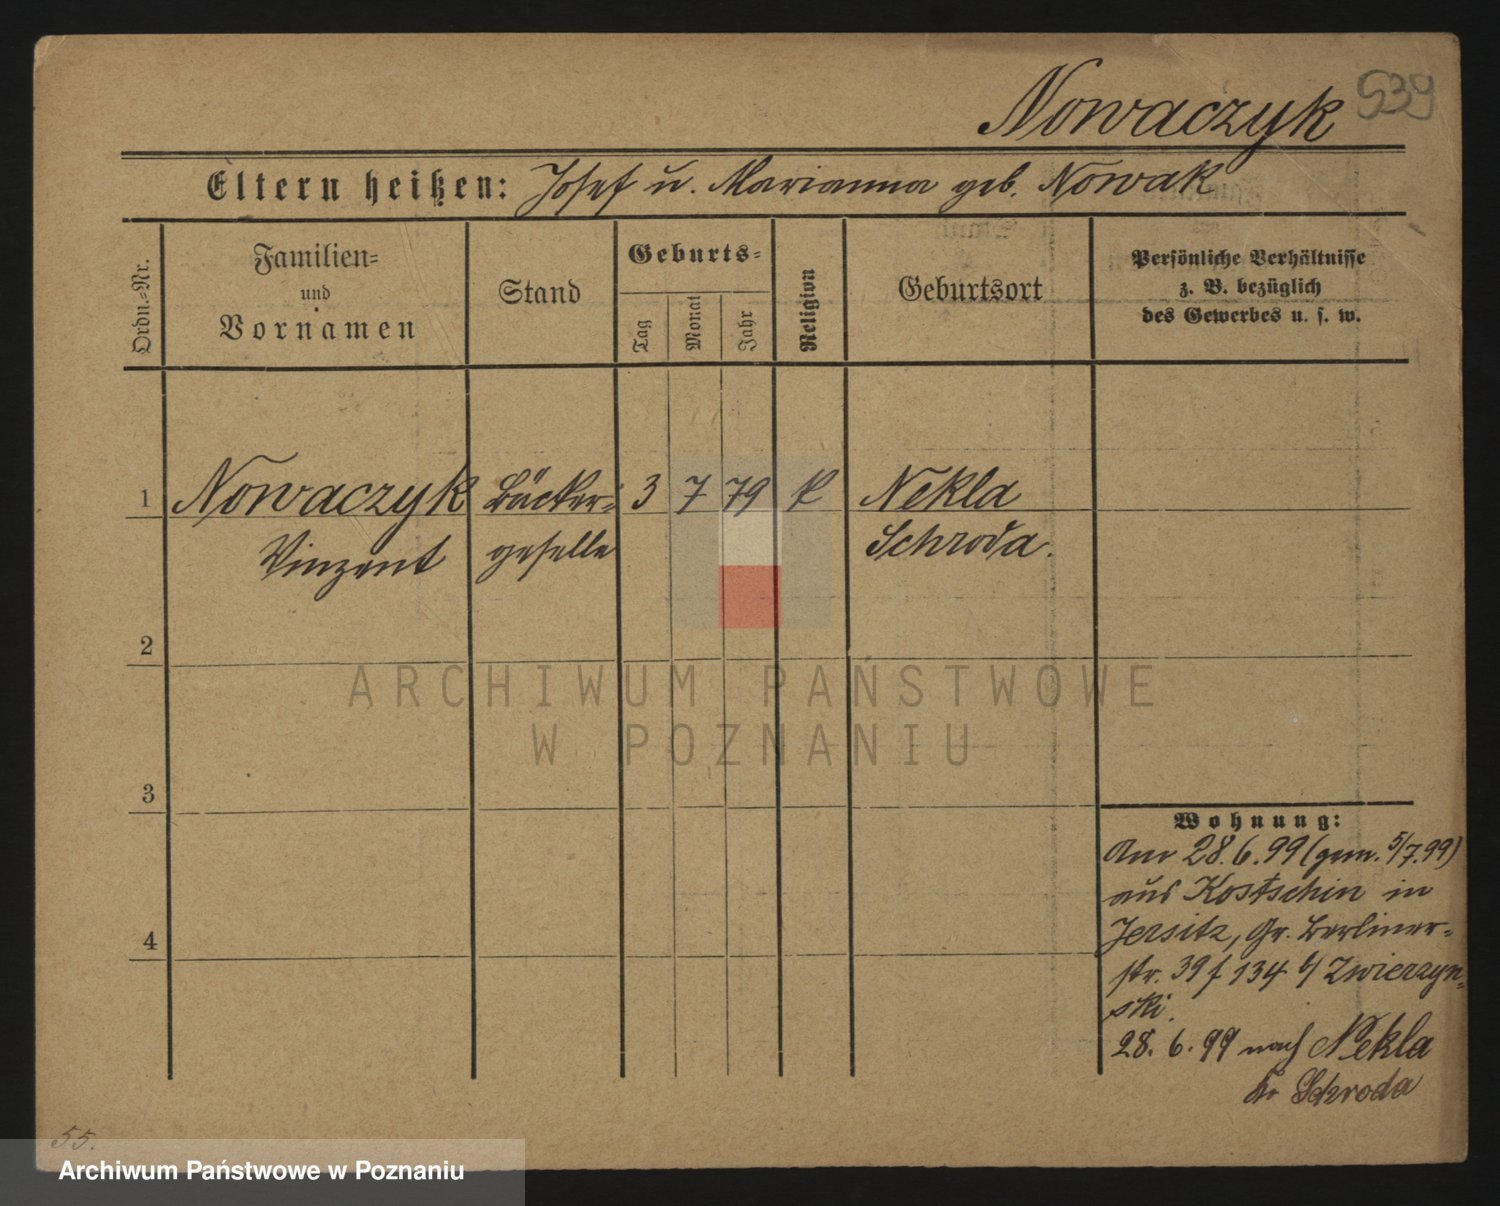 Nowaczyk 539
Eltern heißen: Josef u. Marianna geb. Nowak
Ordn.-Nr.
Familien-
und
Vornamen
Stand
Geburts-
Tag
Monat
Jahr
Religion
Geburtsort
Persönliche Verhältnisse
z. B. bezüglich
des Gewerbes u. s. w.
1 Nowaczyk Bäcker- 3 7 79 k Nekla
Vinzent geselle Schroda.
2
3
4
Wohnung:
Am 28.6.99 (gem. 5/7.99)
aus Kostschin in
Jersitz, Gr. Berliner-
str. 39 f 134 b/ Zwierzyn-
ski.
28.6.99 nach Nekla
Kr Schroda
55.
ARCHIWUM PAŃSTWOWE
W POZNANIU
Archiwum Państwowe w Poznaniu